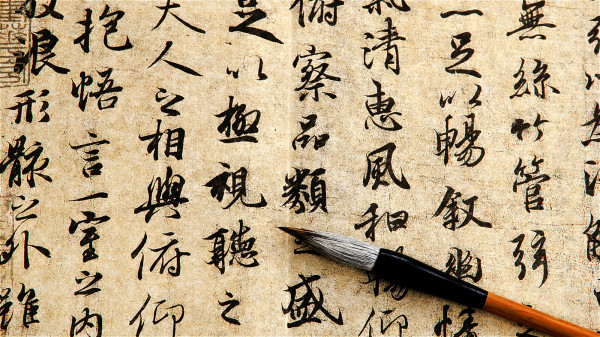 引以為流
無絲竹管弦
足以暢敘幽情
氣清惠風和暢仰
俯察品類之盛
足以極視聽之
夫人之相與俯仰
抱悟言一室之內
放浪形骸之外雖